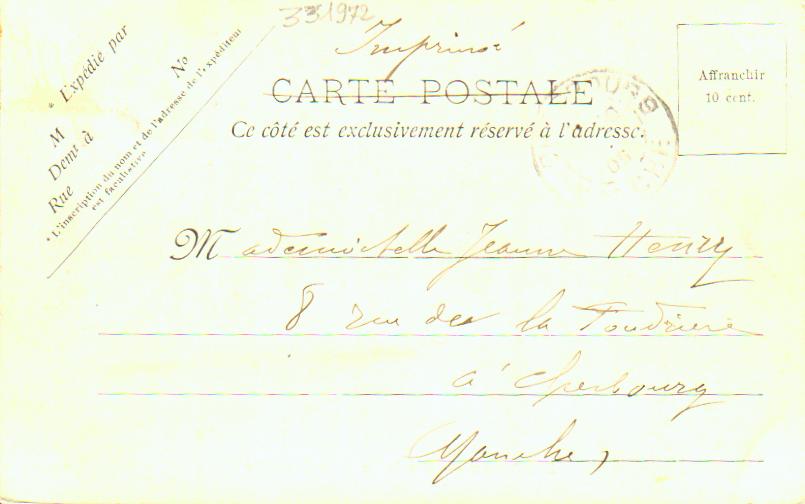 331972
Imprimé
CARTE POSTALE
Ce côté est exclusivement réservé à l'adresse.
Affranchir
10 cent.
* Expédié par
M
Demt à
Rue
No
* L'inscription du nom et de l'adresse de l'expéditeur
est facultative
Mademoiselle Jeanne Henry
8 rue de la Poudrière
à Cherbourg
Manche